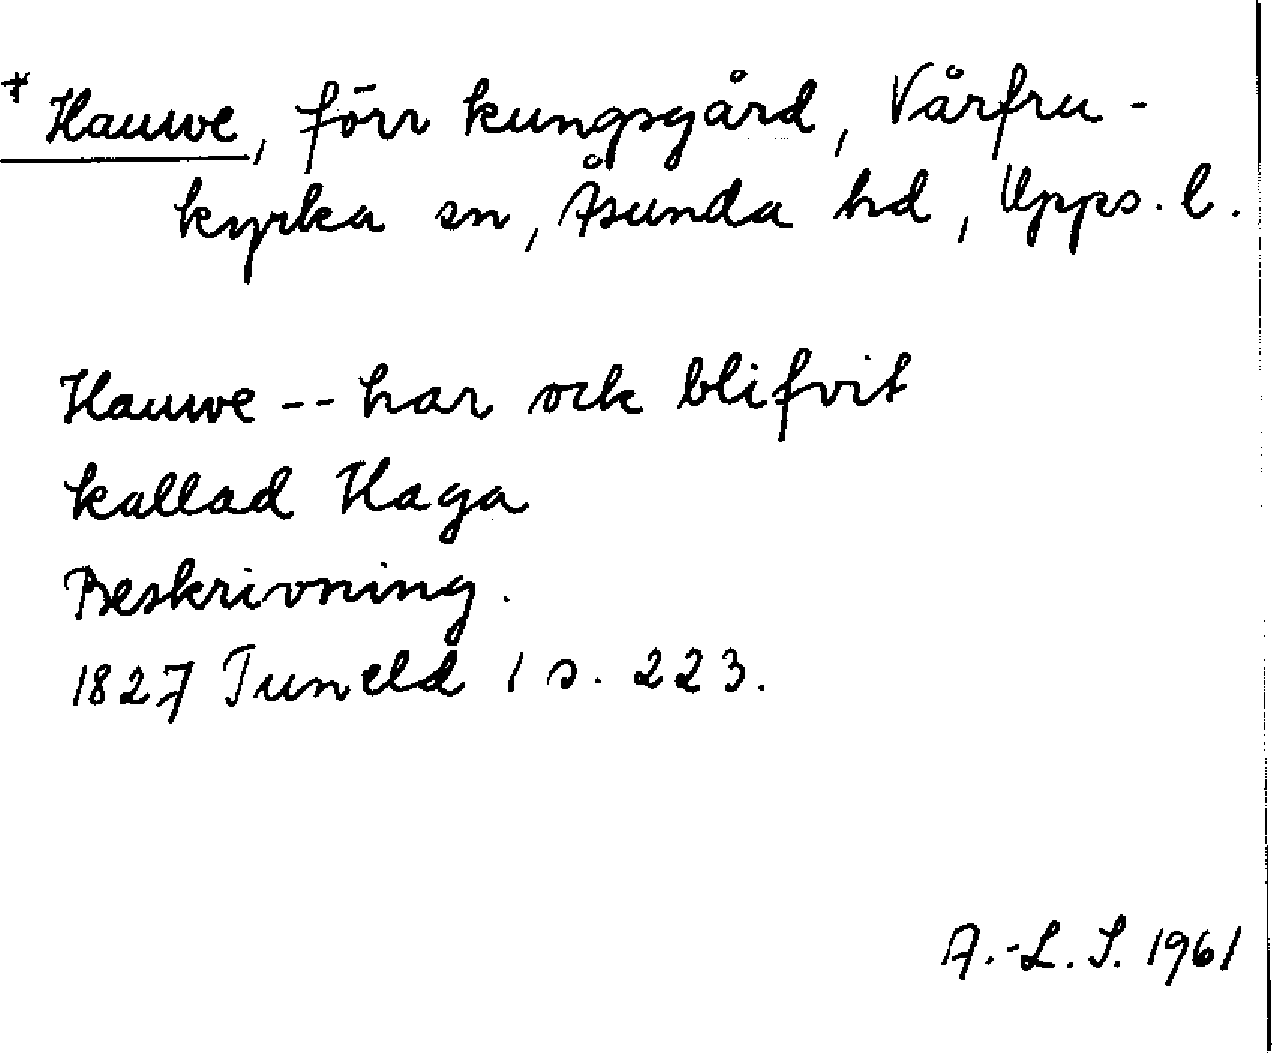 * Hauwe, förr kungsgård, Vårfru-
kyrka sn, Åsunda hd, Upps. l.
Hauwe -- har ock blifvit
kallad Haga
Beskrivning.
1827 Tuneld 1 s. 223.
A.-L. S. 1961